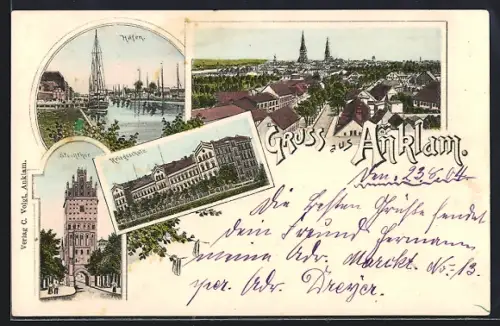 Hafen.
Steinthor
Kriegsschule
Gruss aus Anklam.
Verlag C. Voigt, Anklam.
Den 23/8 04
Die besten Grüße sendet
dein Freund Hermann,
meine Adr. Marckt. No: 13.
per. Adr. Dreyer.